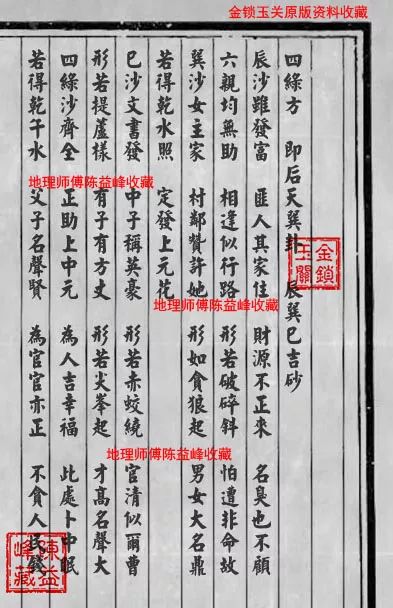 金锁玉关原版资料收藏
四綠方 即后天巽卦 辰巽巳吉砂
辰沙雖發富 匪人其家住 財源不正來 名臭也不顧
六親均無助 相逢似行路 形若破碎斜 怕遭非命故
巽沙女主家 村鄰贊許她 形如貪狼起 男女大名鼎
若得乾水照 定發上元花
巳沙文書發 中子稱英豪 形若赤蛟繞 官清似爾曹
形若提蘆樣 有子有方丈 形若尖峯起 才高名聲大
四綠沙齊全 正助上中元 為人吉幸福 此處卜中眠
若得乾千水 父子名聲賢 為官官亦正 不貪人民錢
地理师傅陈益峰收藏
地理师傅陈益峰收藏
地理师傅陈益峰收藏
金鎖玉關
陳益峰藏